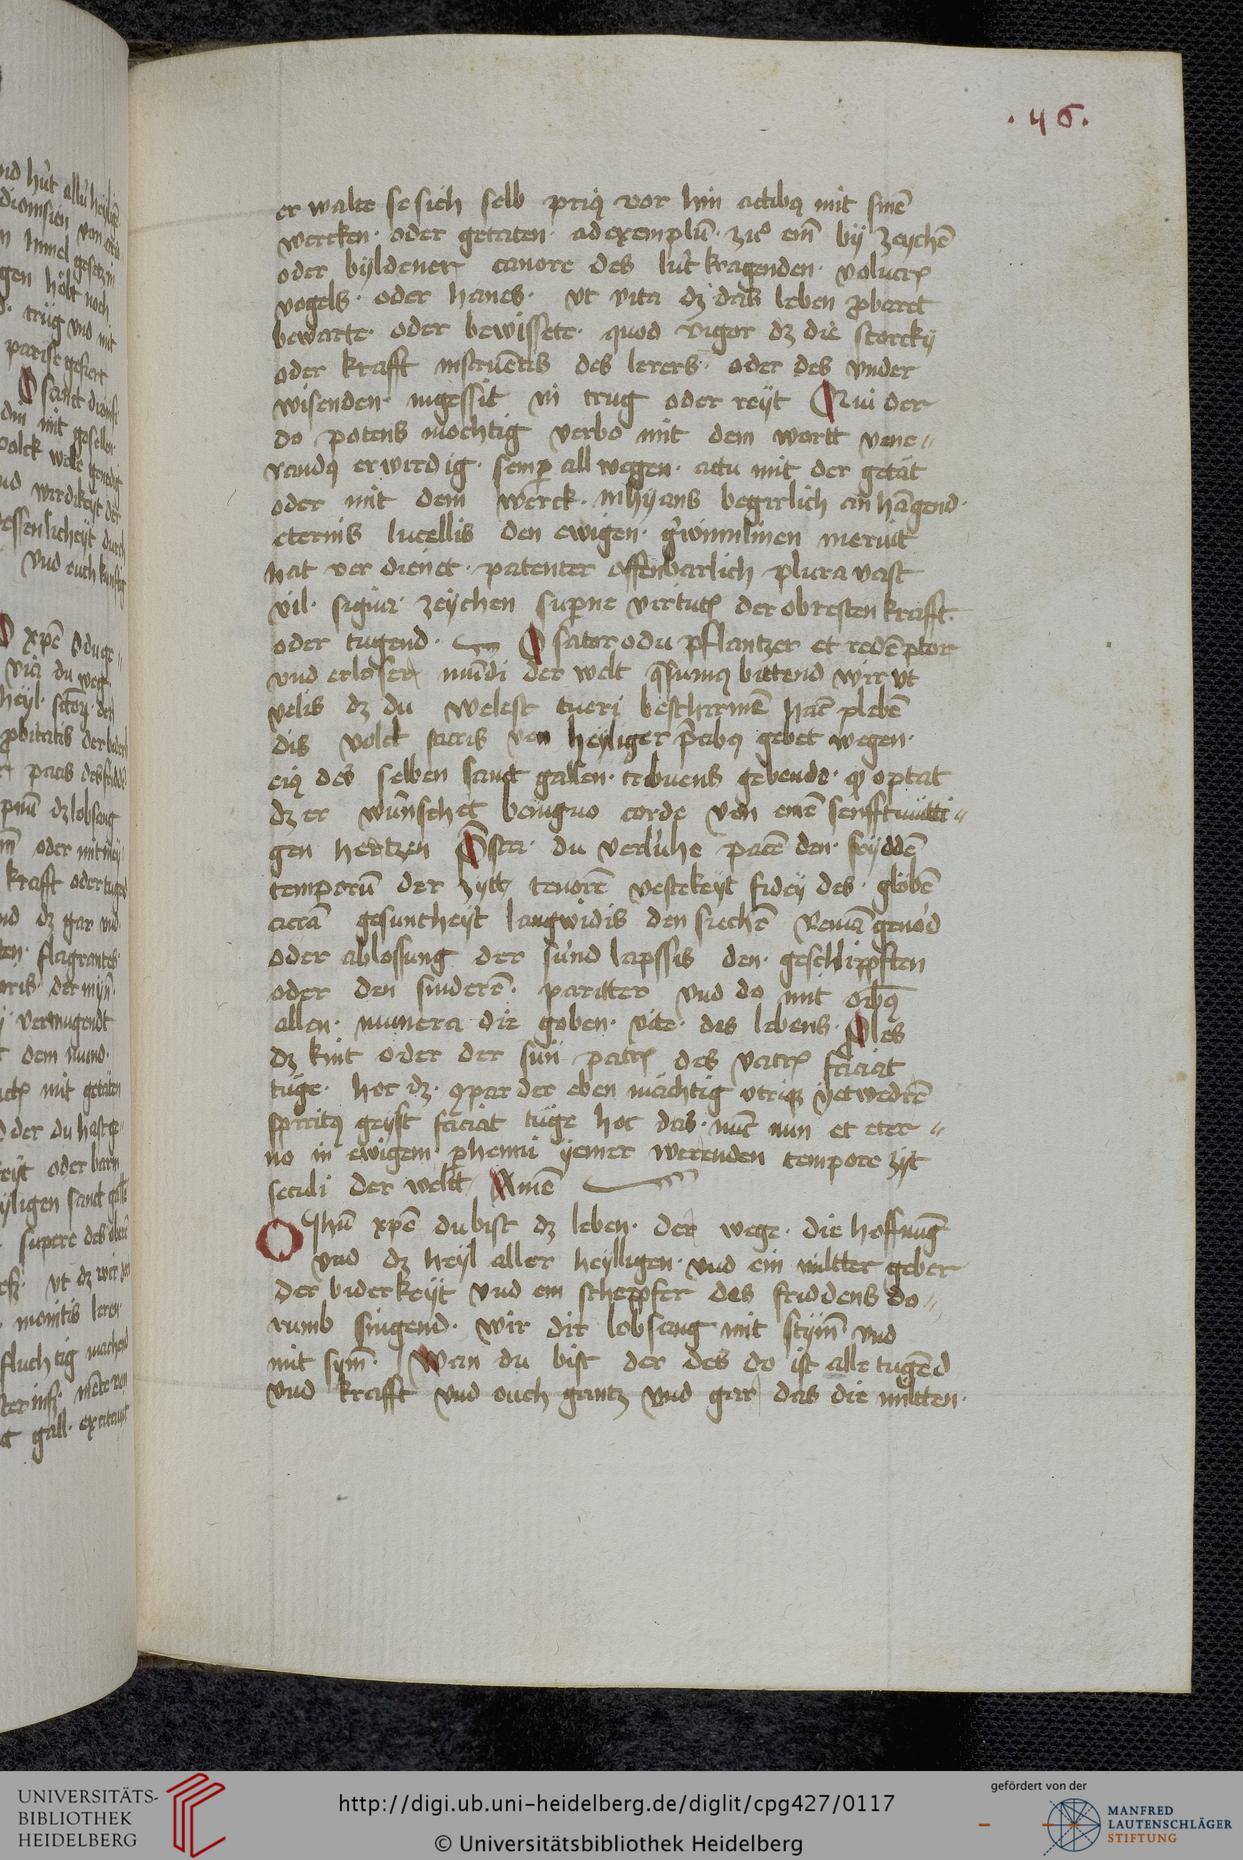 .46.
er walte se sich selb priꝰ vor hin actibꝰ mit sinē
wercken · oder getaten · ad exemplū · zuͦ eim̄ by zeychē
oder byldener canore des lut kragenden · volucrꝭ
vogels · oder hanes · vt vita dz das leben ꝓbaret
bewarte · oder bewissete · quod vigor dz die storcky
oder krafft instruētis des lerers · oder des vnder
wisenden · ingessit in trug oder reyt Qui der
do potens mochtig verbo mit dem wortt vene〃
randꝰ erwirdig · semꝑ all wegen · actu mit der getät
oder mit dem werck · inhyans begirlich an hāgend ·
eternis lucellis den ewigen · gwinnlinen meruit
hat ver dienet · patenter offenbarlich plura vast
vil · signa · zeychen suꝑne virtutꝭ der obresten krafft ·
oder tugend · O sator o du pflantzer et redēptor
vnd erloser mūdi der welt q̄sumꝰ bittend wir vt
velis dz du welest tueri beschirmē hāc plebē
dis volck sacris von heyliger p̄cibꝰ gebet wegen ·
eiꝰ des selben sanct gallen · tribuens gebende · qͥ optat
dz er wunschet benigno corde von einē senfftmütti〃
gen hertzen P̄sta · du verluhe pacē den · fryddē
temporū der zytt tenorē vestekeyt fidey des · globē
accā gesuntheyt langwidis den siechē Veniā genod
oder ablossung der sund lapssis den · geschlipften
oder den sinderē · pariter vnd do mit oībꝰ
allen · munera die goben · vite · des lebens · Ples
dz kint oder der sun patrꝭ des vatrꝭ faciat
tüge · hoc dz · ꝯpar der eben mächtig vtriꝗ yetwedrē
spiritꝰ geyst faciat tüge hoc das · nūc nun et eter〃
no in ewigem · phenni yemer werenden tempore zyt
seculi der weltt Amē
O Jhū xpē du bist dz leben · der wege · die hoffnūg
vnd dz heyl aller heylligen · vnd ein miltter geber
der biderkeyt vnd ein schepfer des friddens do〃
rumb singend · wir dir lobsang mit stym̄ vnd
mit sym̄ · Wan du bist der des do ist alle tugēd
vnd krafft vnd ouch gantz vnd gar das die mitten ·
UNIVERSITÄTS-
BIBLIOTHEK
HEIDELBERG
http://digi.ub.uni-heidelberg.de/diglit/cpg427/0117
© Universitätsbibliothek Heidelberg
gefördert von der
MANFRED
LAUTENSCHLÄGER
STIFTUNG